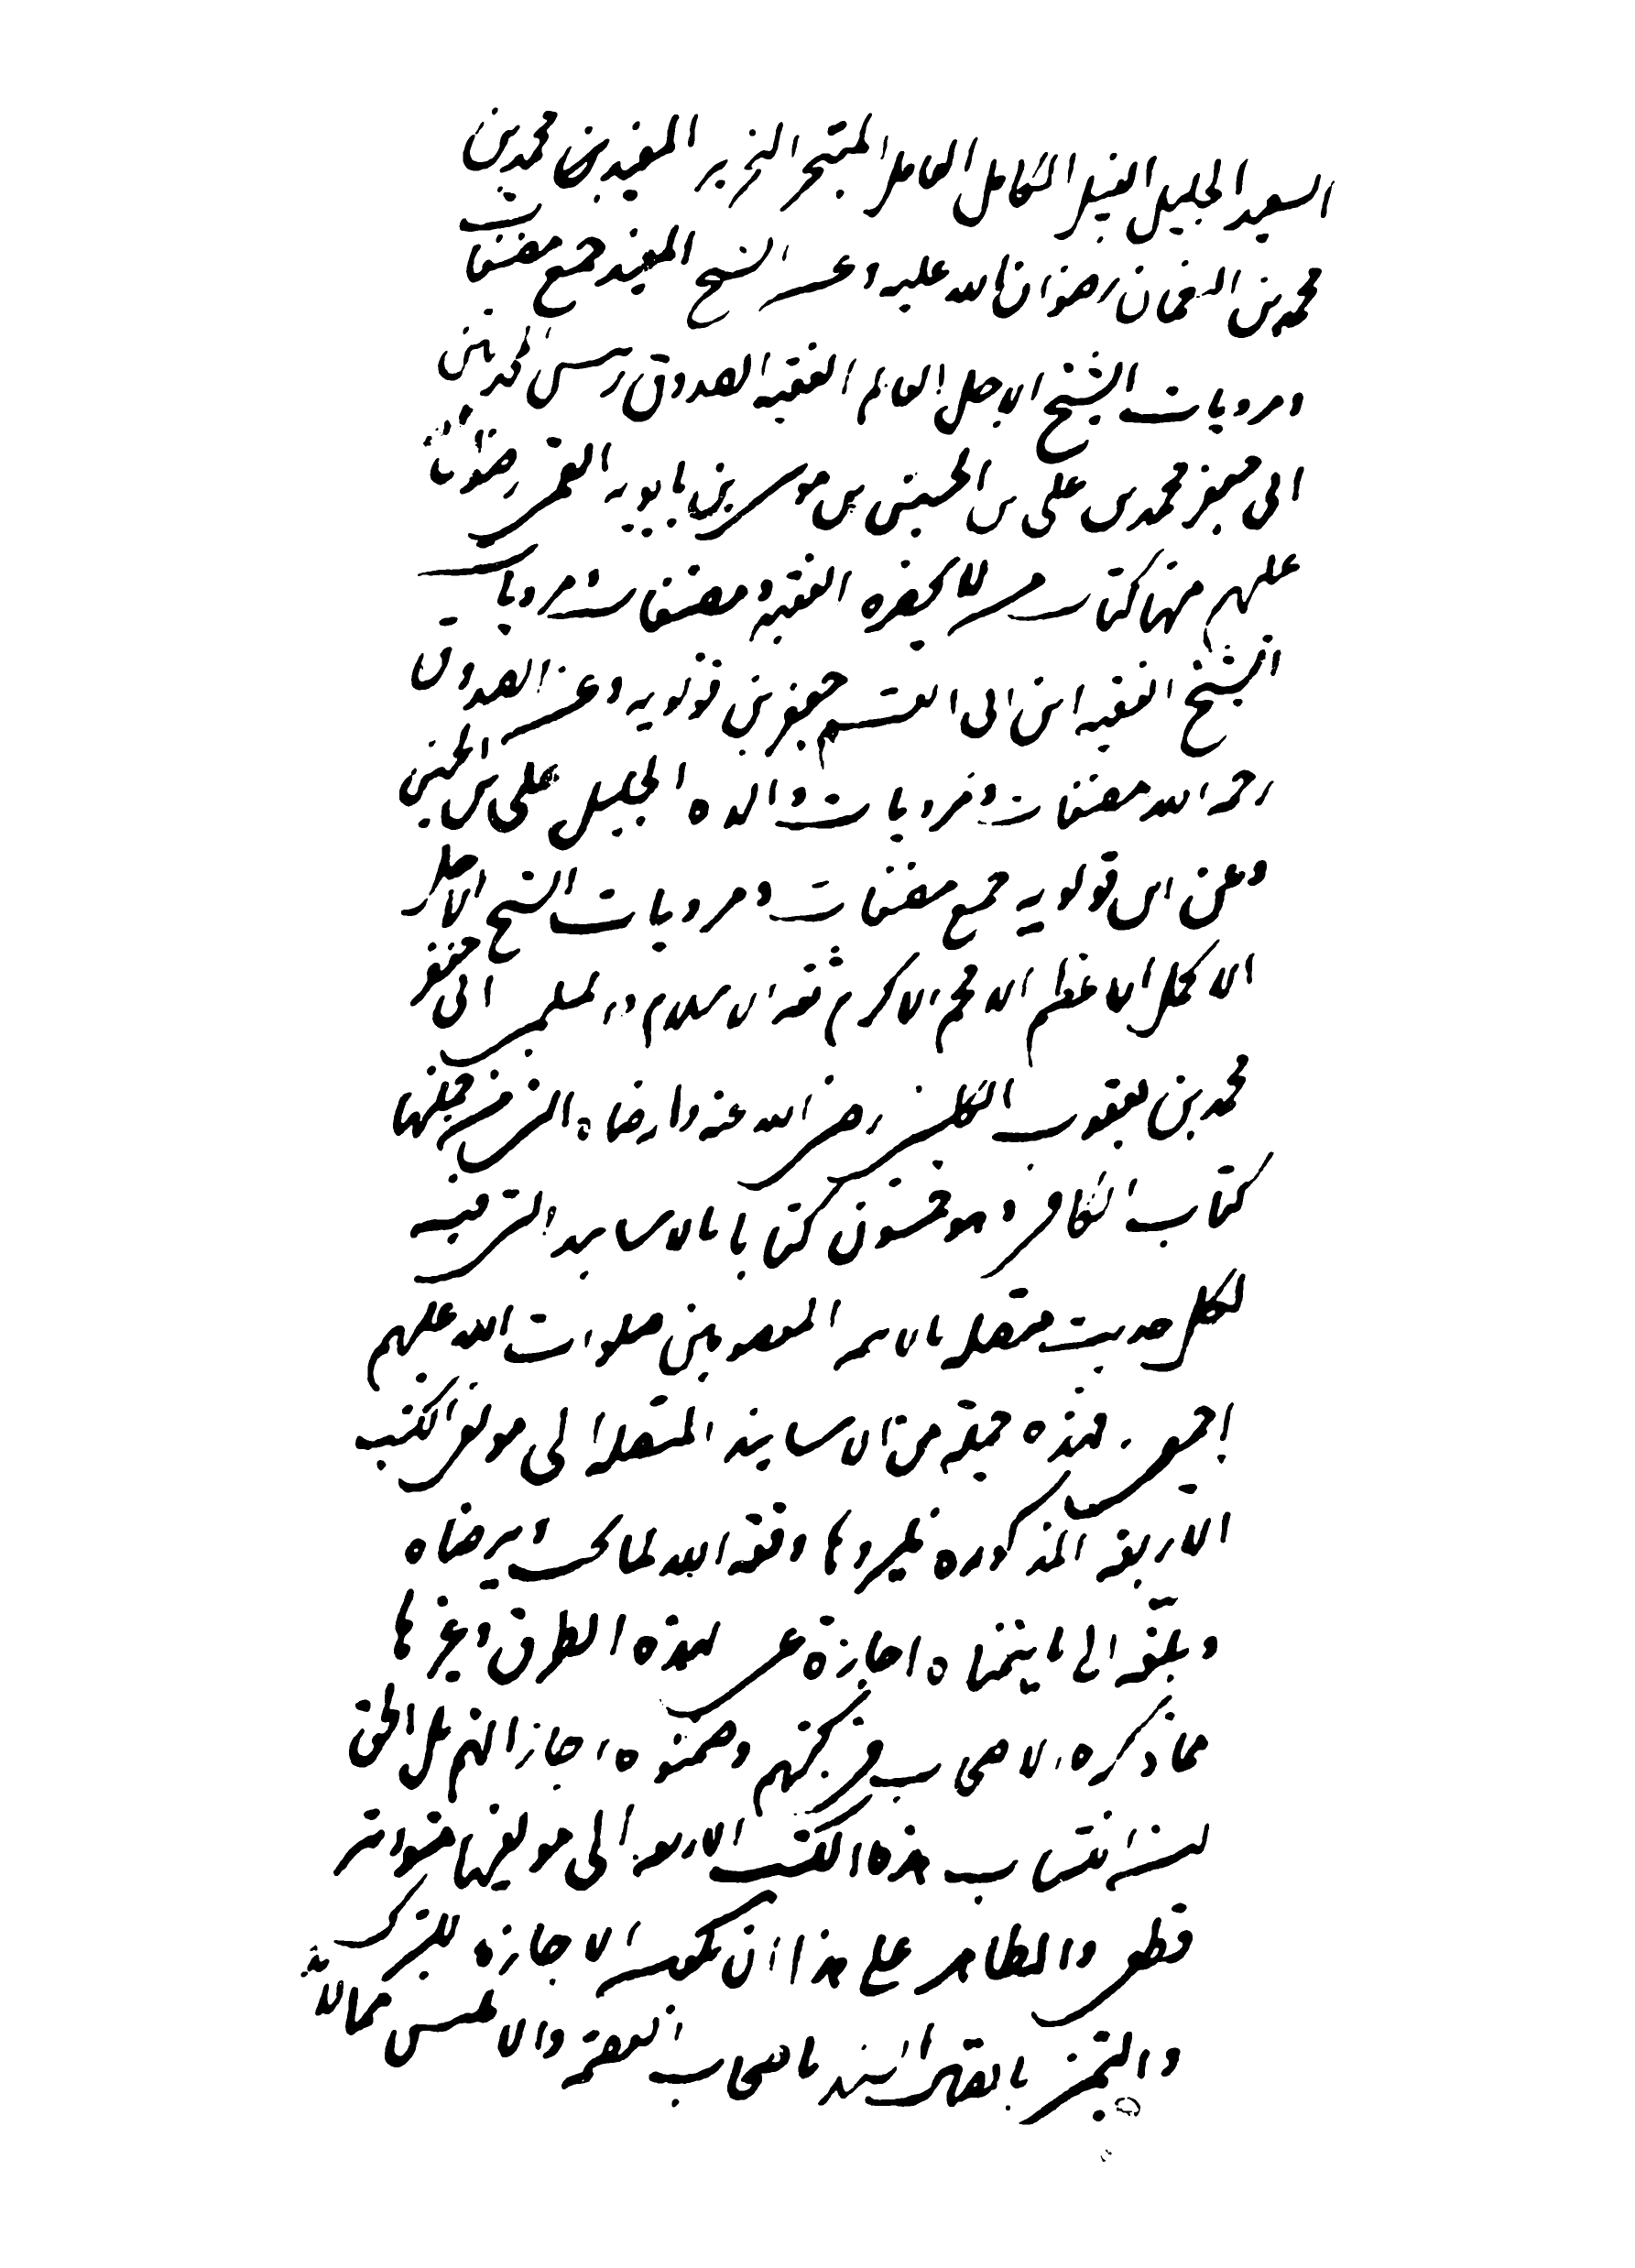 السعيد الجليل النبيل الكامل الفاضل المتبحر النحرير المفيد بن محمد بن
محمد بن النعمان رضوان الله عليه وعن الشيخ المفيد جميع مصنفات
ومرويات الشيخ الاجل العالم الفقيه الصدوق رئيس المحدثين
ابى جعفر محمد بن على بن الحسين بن موسى بن بابويه القمى رضوان الله
عليهم منها كتاب من لا يحضره الفقيه ومصنفات ومرويات
الشيخ الفقيه ابن ابى القسم جعفر بن قولويه وعن الصدوق
رحمه الله مصنفات ومرويات والده الجليل على بن الحسين
وعن ابن قولويه جميع مصنفات ومرويات الشيخ الاجل
الاكمل الاعظم الافخم الاكرم ثقة الاسلام والمسلمين ابى جعفر
محمد بن يعقوب الكلينى رضى الله عنه وارضاه التى من جملتها
كتاب الكافى وهو خمسون كتابا بالاسانيد التى فيه
لكل حديث متصلة بالائمة المعصومين صلوات الله عليهم
اجمعين. فهذه جملة من الاسانيد المتصلة الى مولفى الكتب
الاربعة المذكورة فليروها وفقه الله لما يحب ويرضاه
وبلّغه الى ما يتمناه اجازة عنى لهذه الطرق وغيرها
مما ذكره الاصحاب فى كتبهم وضمنوه اجازاتهم بل الحق
ان انتساب هذه الكتب الاربعة الى مولفيها متواتر
قطعى والظاهر على هذا ان تكون الاجازة للتبرك
والتيمن باتصال السند باصحاب العصمة والا فليس مما لابد